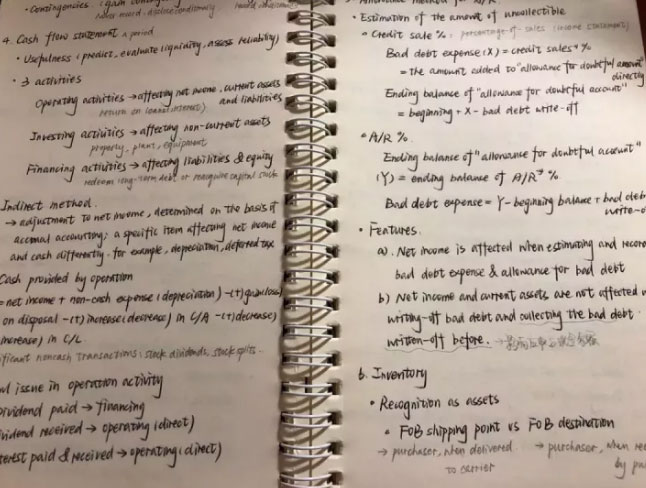 · Contingencies. (gain
4. Cash flow statement a period
· Usefulness (predict, evaluate liquidity, assess reliability)
· 3 activities
Operating activities → affecting net income, current assets
and liabilities
return on
Investing activities → affecting non-current assets
property, plant, equipment
Financing activities → affecting liabilities & equity
redeem long-term debt or reacquire capital stock
Indirect method.
→ adjustment to net income, determined on the basis of
accrual accounting; a specific item affecting net income
and cash differently. for example, depreciation, deferred tax
Cash provided by operation
= net income + non-cash expense (depreciation) -(+) gain(loss)
on disposal -(+) increase(decrease) in C/A -(+) decrease)
increase) in C/L.
ificant noncash transactions: stock dividends, stock splits.
al issue in operation activity
ividend paid → financing
vidend received → operating (direct)
terest paid & received → operating (direct)
· Estimation of the amount of uncollectible
Credit sale %: percentage of sales (income statement)
Bad debt expense (X) = credit sales * %
= the amount added to "allowance for doubtful amount"
directly
Ending balance of "allowance for doubtful account"
= beginning + X - bad debt write-off
A/R %.
Ending balance of "allowance for doubtful account"
(Y) = ending balance of A/R * %
Bad debt expense = Y - beginning balance + bad deb
write-o
· Features.
a). Net income is affected when estimating and recor
bad debt expense & allowance for bad debt
b) Net income and current assets are not affected w
writing-off bad debt and collecting the bad debt
written-off before. →
6. Inventory
· Recognition as assets
FOB shipping point vs FOB destination
→ purchaser, when delivered → purchaser, when re
to carrier by pu